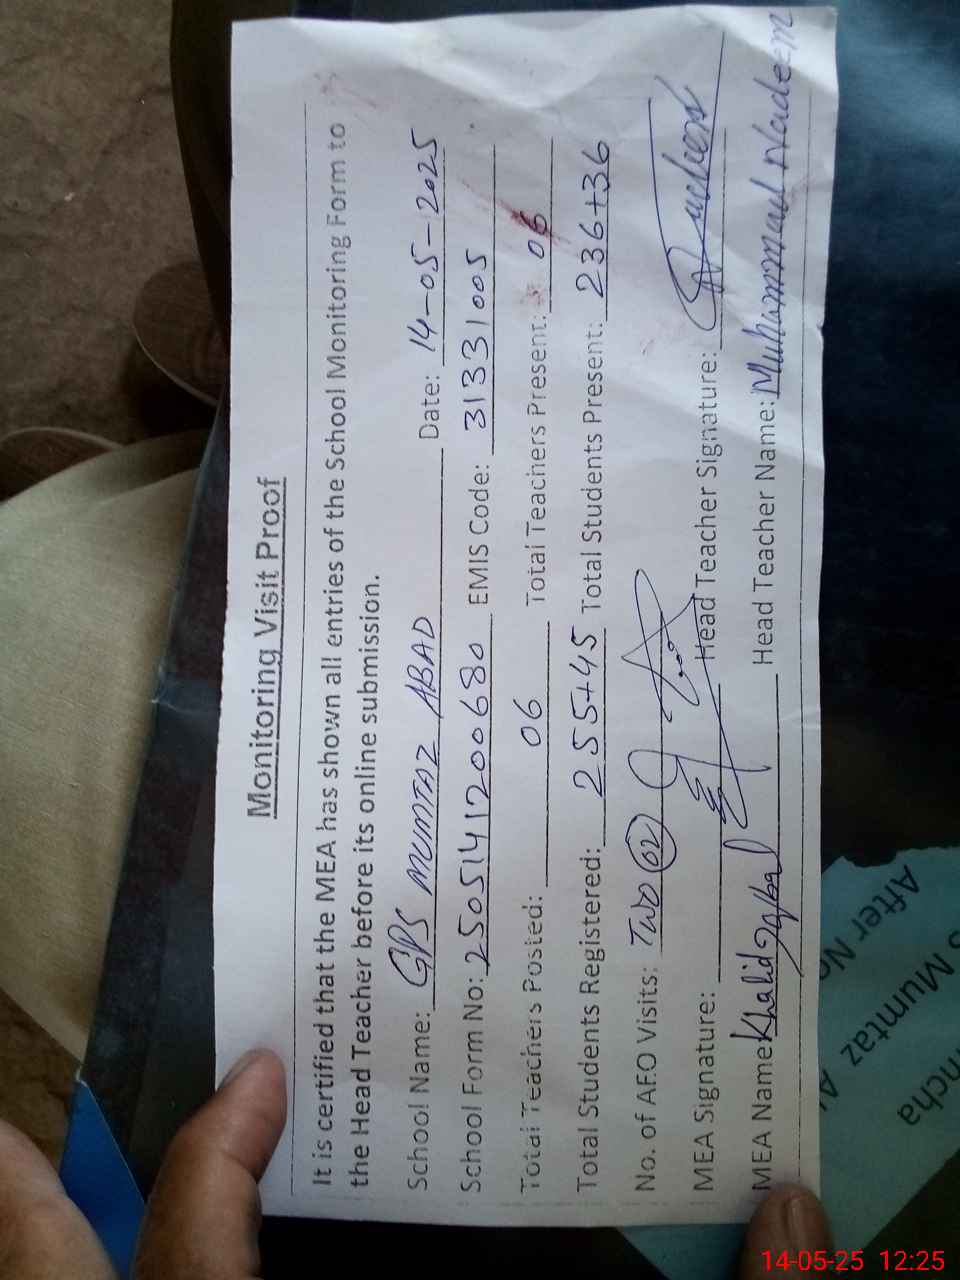 Monitoring Visit Proof
It is certified that the MEA has shown all entries of the School Monitoring Form to
the Head Teacher before its online submission.
School Name: GPS MUMTAZ ABAD Date: 14-05-2025
School Form No: 2505141200680 EMIS Code: 31331005
Total Teachers Posted: 06 Total Teachers Present: 06
Total Students Registered: 255+45 Total Students Present: 236+36
No. of AEO Visits: Two (02)
MEA Signature: Head Teacher Signature:
MEA Name Khalid Iqbal Head Teacher Name: Muhammad Nadeem
After No
Mumtaz
ncha
14-05-25 12:25